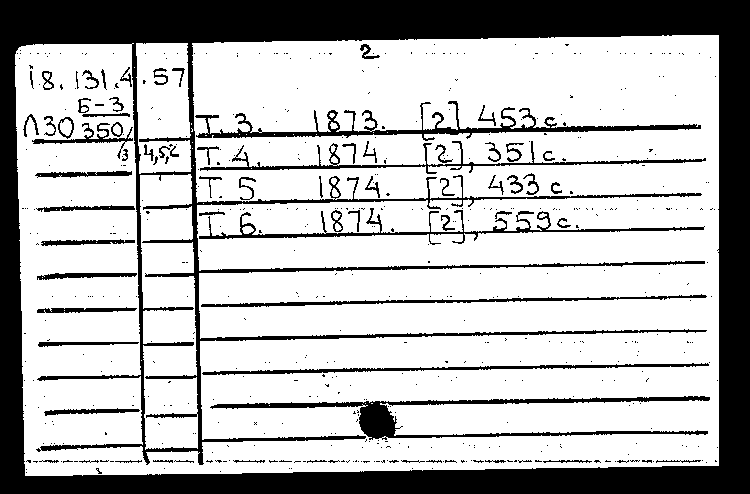 2
18.131.4.57
Б-3
Л30 350/
Т. 3. 1873. [2], 453 с.
/3 4,5,6 Т. 4. 1874. [2], 351 с.
Т. 5. 1874. [2], 433 с.
Т. 6. 1874. [2], 559 с.